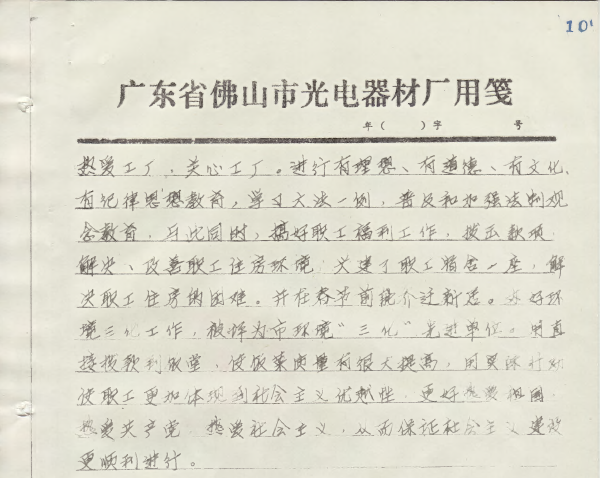 101
广东省佛山市光电器材厂用笺
年( )字 号
热爱工厂，关心工厂。进行有理想、有道德、有文化、
有纪律思想教育，学习大法一例，普及和加强法制观
念教育，与此同时，搞好职工福利工作，拨出款项
解决、改善职工住房环境，兴建了职工宿舍一座，解
决职工住房的困难。并在春节前统介迁新选。好环
境三化工作，被评为市环境“三化”先进单位。用直
接拨款到饭堂，使饭菜质量有很大提高，用实际行动
使职工更加体现到社会主义优越性，更好热爱祖国，
热爱共产党，热爱社会主义，从而保证社会主义建设
更顺利进行。